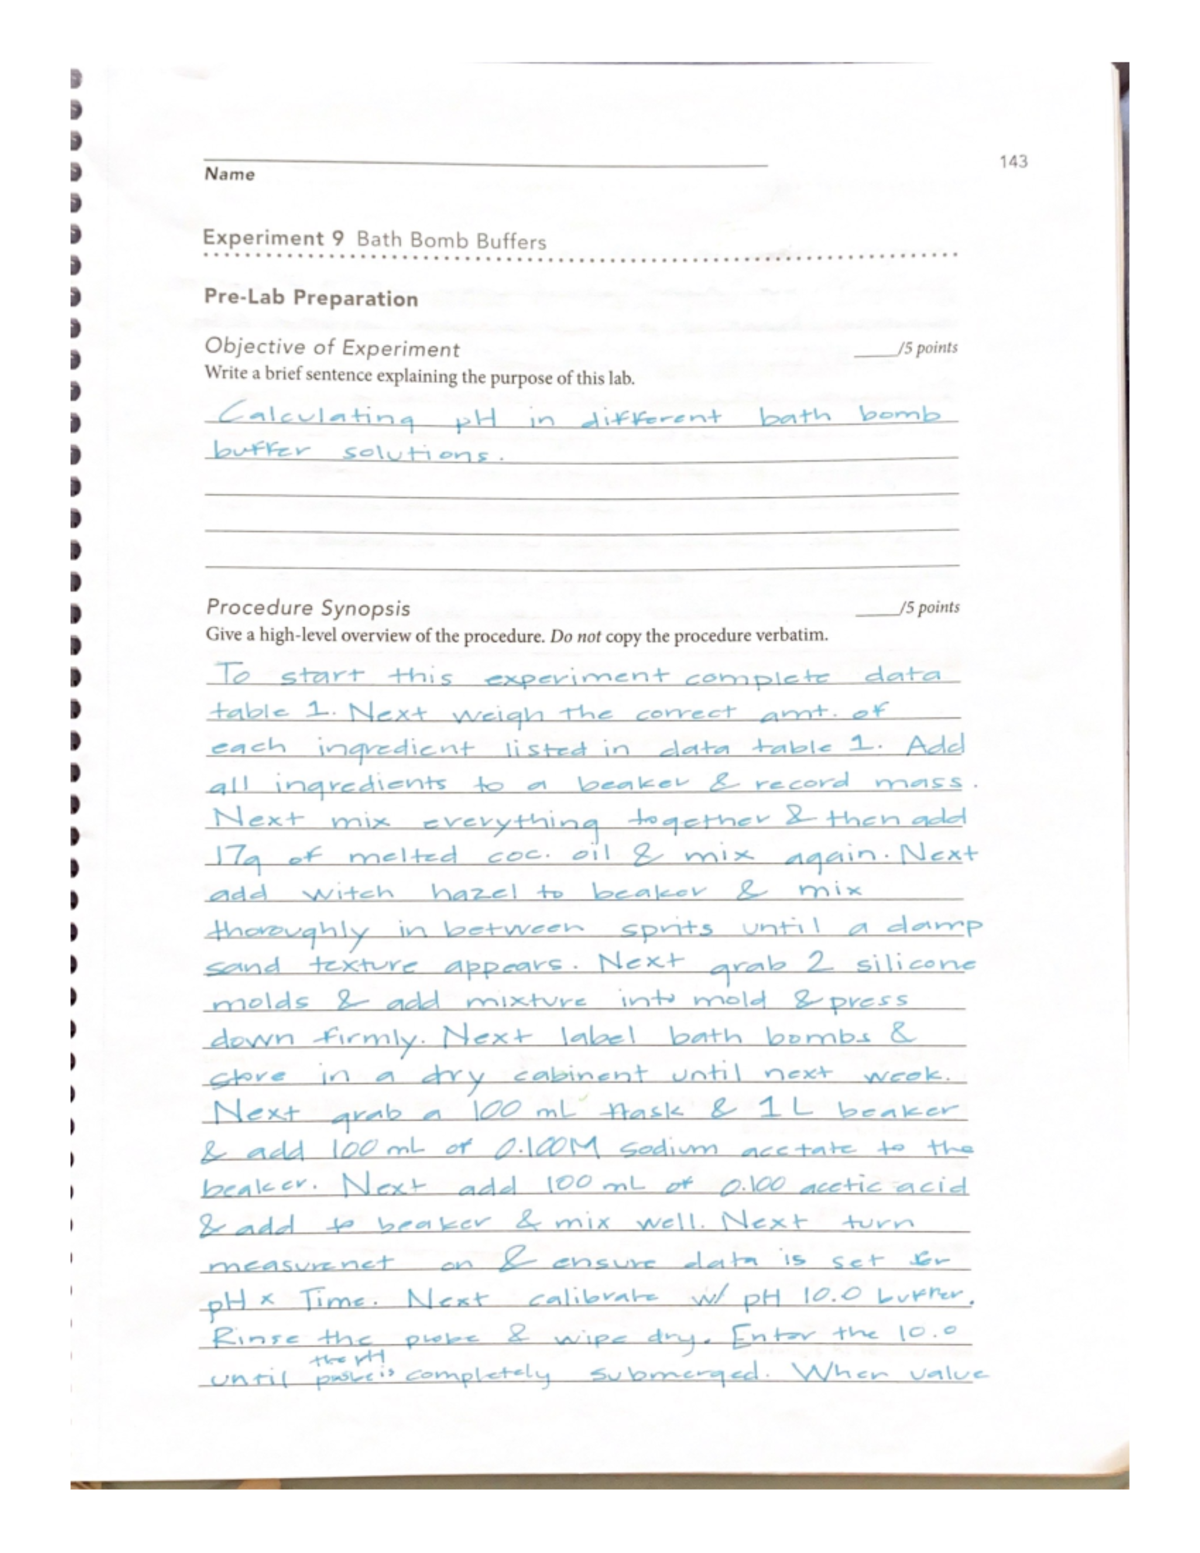 143
Name
Experiment 9 Bath Bomb Buffers
Pre-Lab Preparation
Objective of Experiment ____/5 points
Write a brief sentence explaining the purpose of this lab.
Calculating pH in different bath bomb
buffer solutions.
Procedure Synopsis ____/5 points
Give a high-level overview of the procedure. Do not copy the procedure verbatim.
To start this experiment complete data
table 1. Next weigh the correct amt. of
each ingredient listed in data table 1. Add
all ingredients to a beaker & record mass.
Next mix everything together & then add
17g of melted coc. oil & mix again. Next
add witch hazel to beaker & mix
thoroughly in between sprits until a damp
sand texture appears. Next grab 2 silicone
molds & add mixture into mold & press
down firmly. Next label bath bombs &
store in a dry cabinent until next week.
Next grab a 100 mL flask & 1 L beaker
& add 100 mL of 0.100M sodium acetate to the
beaker. Next add 100 mL of 0.100 acetic acid
& add to beaker & mix well. Next turn
measurenet on & ensure data is set for
pH x Time. Next calibrate w/ pH 10.0 buffer.
Rinse the probe & wipe dry. Enter the 10.0
the pH
until probe is completely submerged. When value